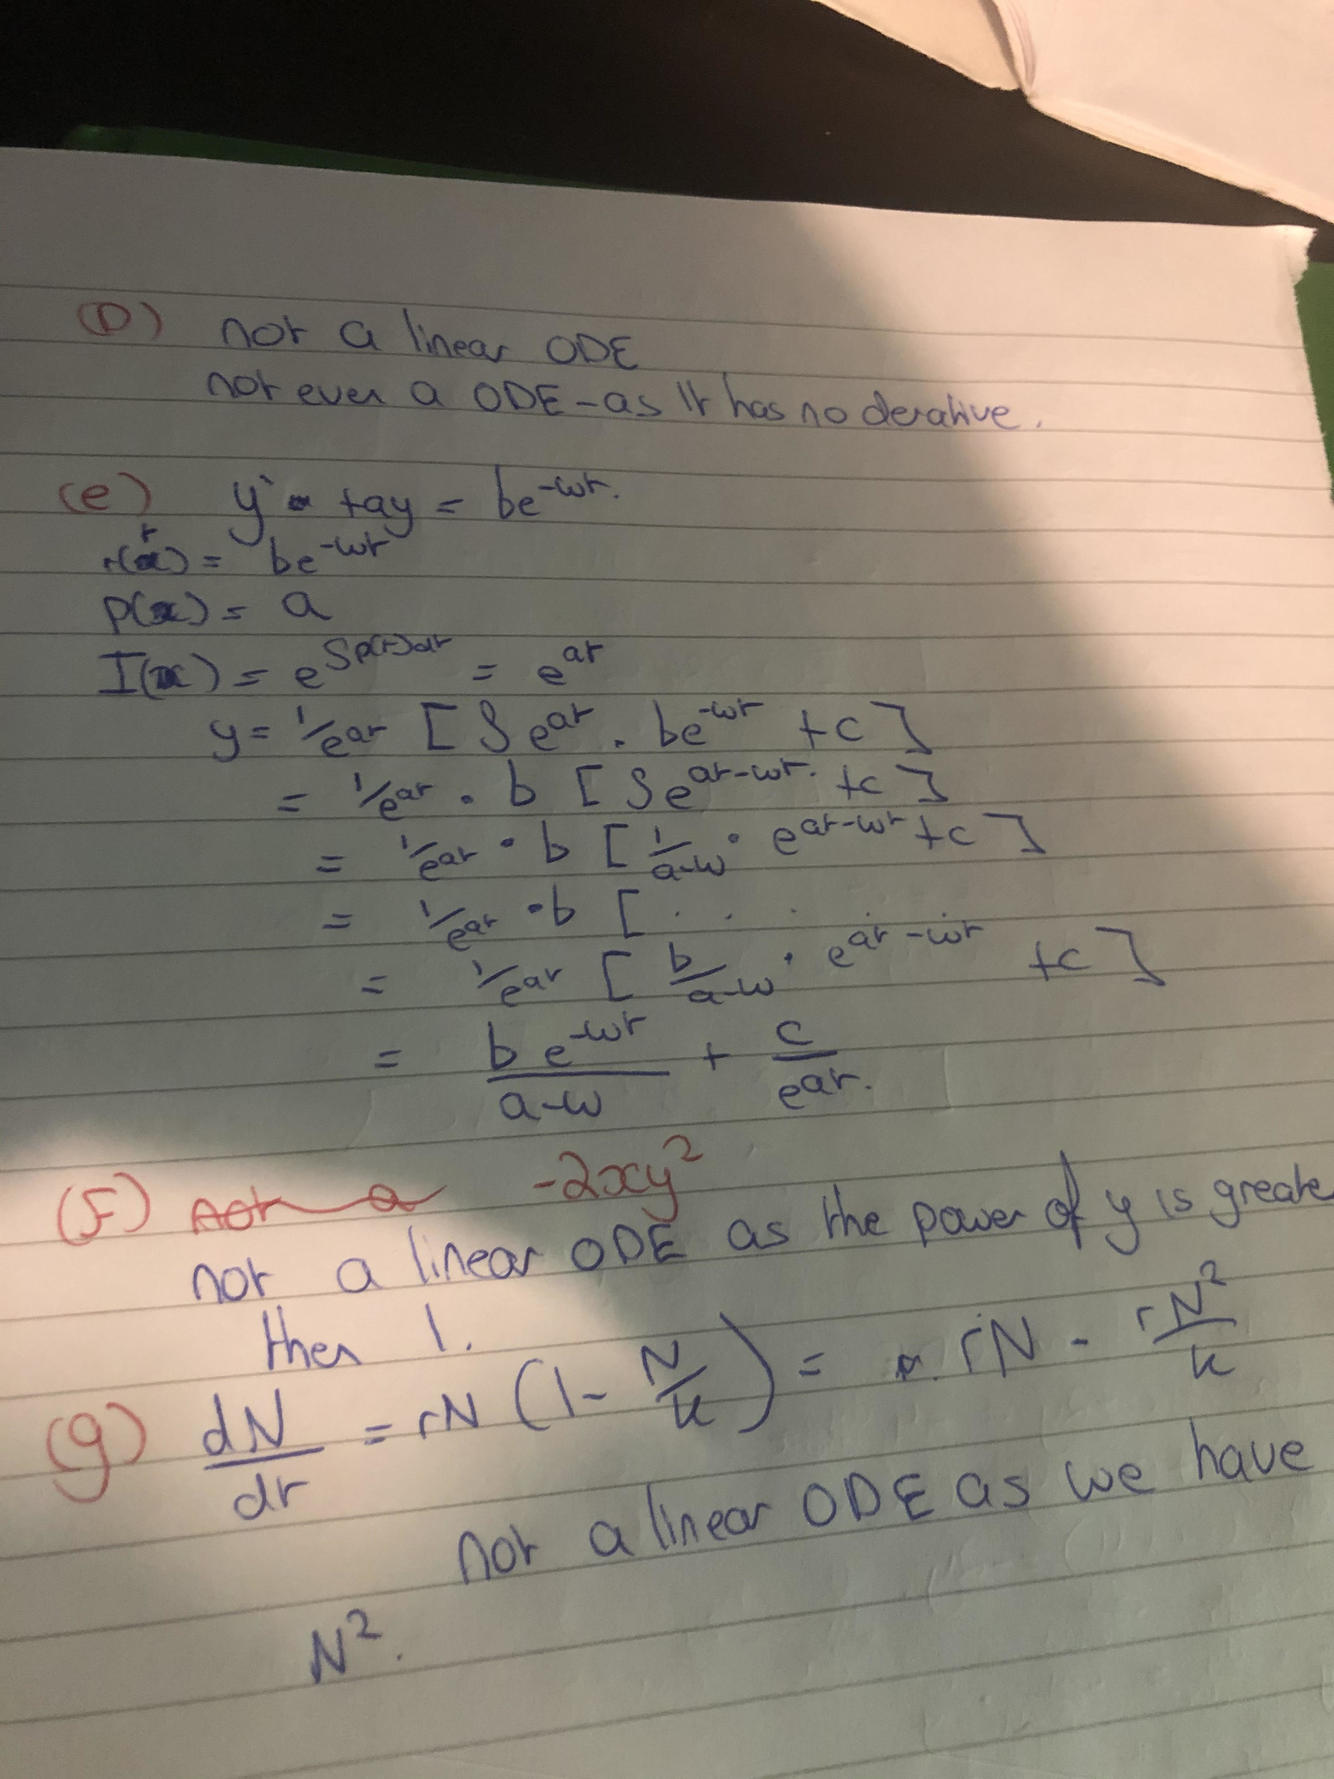 (D) not a linear ODE
not even a ODE - as it has no derative.
(e) y' + ay = be^-wt.
r(t) = be^-wt
p(x) = a
I(x) = e^∫p(t)dt = e^at
y = 1/e^at [∫e^at . be^-wt + c]
= 1/e^at . b [∫e^at-wt. + c]
= 1/e^at . b [1/a-w . e^at-wt + c]
= 1/e^at . b [ . . . .
= 1/e^at [b/a-w . e^at-wt + c]
= be^-wt/a-w + c/e^at.
(f) not a -2xy²
not a linear ODE as the power of y is greate
then 1.
(g) dN/dt = rN (1 - N/k) = rN - rN²/k
not a linear ODE as we have
N².